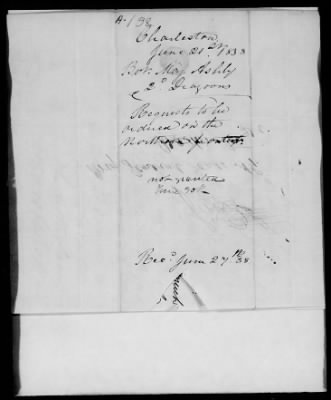 A-138,
Charleston
June 21st 1838
Bvt. Maj. Ashby
2d Dragoons
Requests to be
ordered on the
Northern frontier
not granted
June 30th
Recd June 27th 38